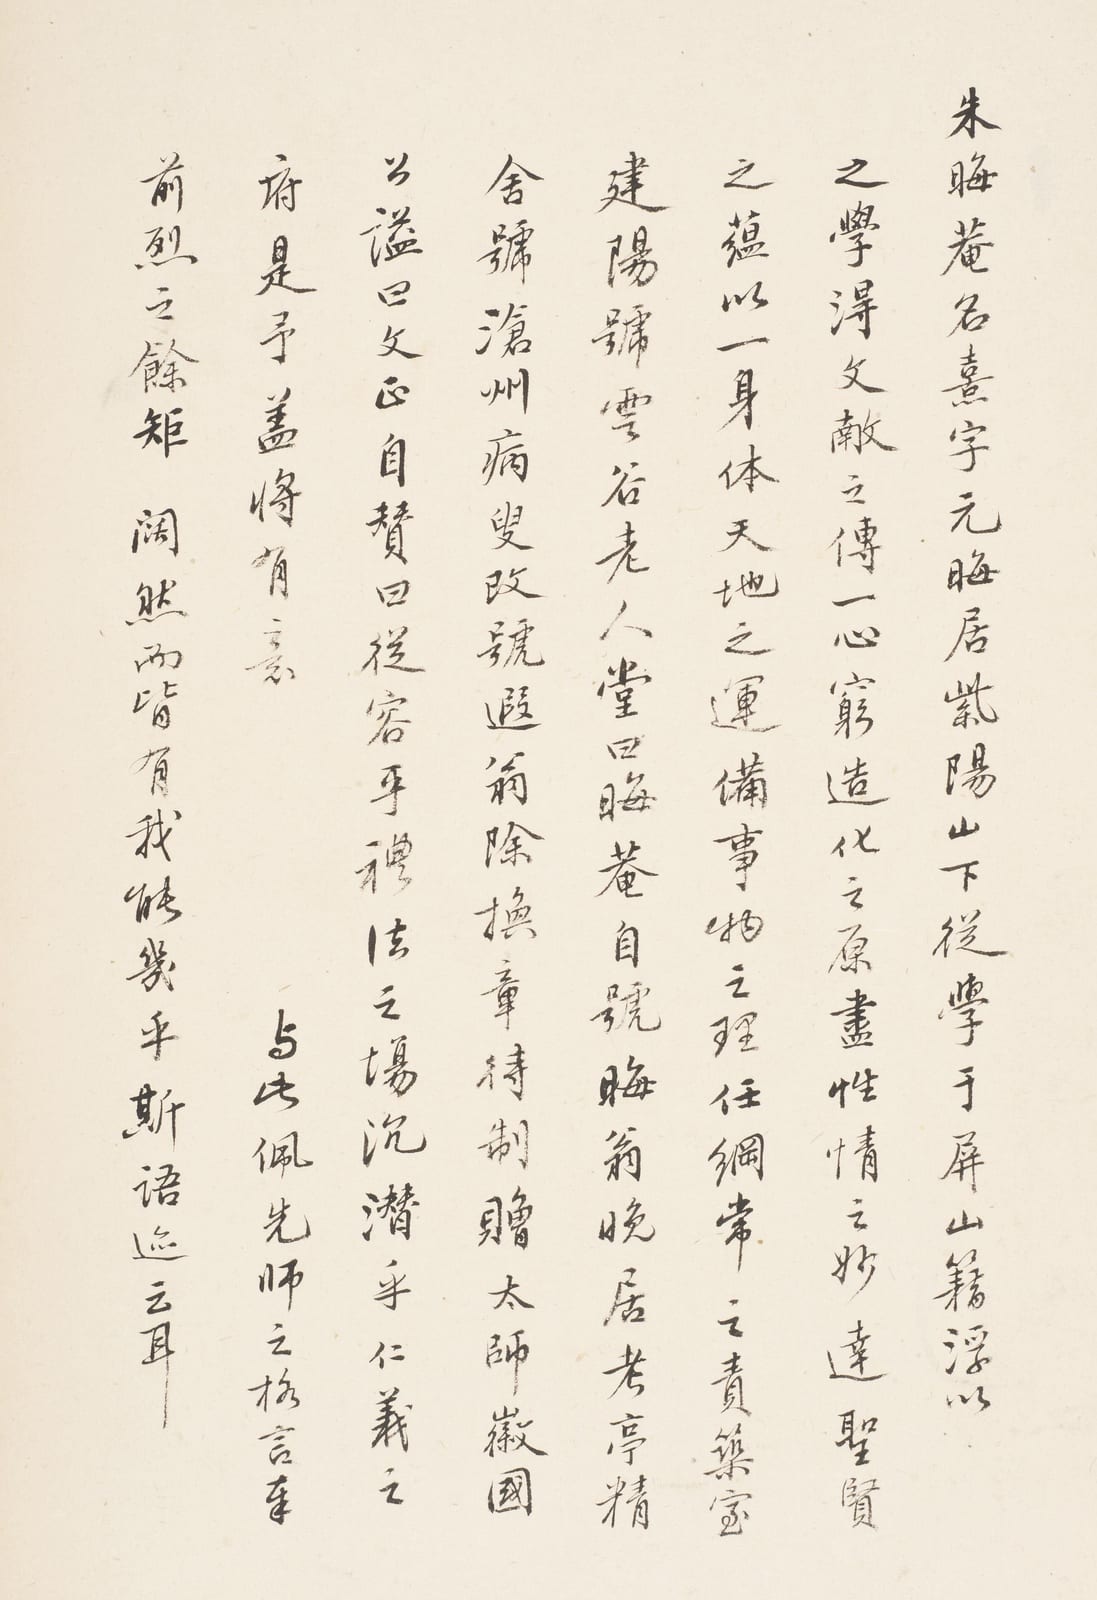 朱晦菴名熹字元晦居紫陽山下從學于屏山籍浮以
之學淂文敵之傳一心窮造化之原盡性情之妙達聖賢
之蘊以一身体天地之運備事物之理任綱常之責築室
建陽號雲谷老人堂曰晦菴自號晦翁晚居考亭精
舍號滄州病叟改號遐翁除換章待制贈太師徽國
公謚曰文正自贊曰從容乎禮法之場沉潛乎仁義之
府是予蓋將有意 与此佩先師之格言奉
前烈之餘矩 闊然而皆有我能幾乎斯語迹云耳